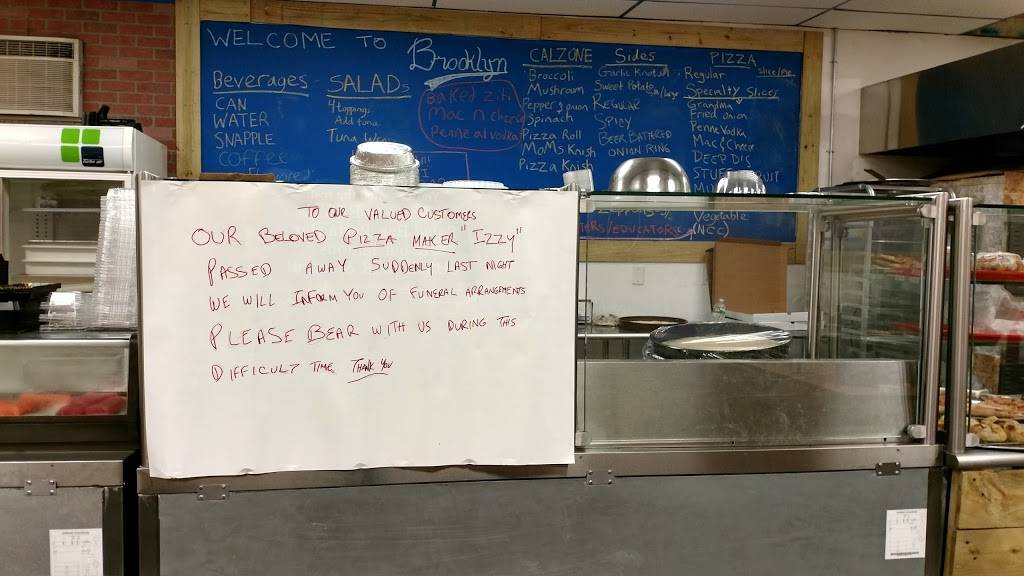 WELCOME TO Brooklyn
Beverages
CAN
WATER
SNAPPLE
COFFEE
SALADS
4 toppings
Add tuna
Tuna
BAKED ZITI
Mac n cheese
Penne alvodka
CALZONE
Broccoli
Mushroom
Pepper & onion
Spinach
Pizza Roll
MoMs Knish
Pizza Knish
Sides
Garlic Knots
Sweet Potato
REGULAR
SPICY
BEER BATTERED
ONION RING
PIZZA
Regular Slice/Pie
Specialty Slices
Grandma
Fried onion
Penne Vodka
Mac & Cheese
DEEP DISH
STUFF
Vegetable
/EDUCATORS (NCC)
TO OUR VALUED CUSTOMERS
OUR BELOVED PIZZA MAKER "IZZY"
PASSED AWAY SUDDENLY LAST NIGHT
WE WILL INFORM YOU OF FUNERAL ARRANGEMENTS
PLEASE BEAR WITH US DURING THIS
DIFFICULT TIME THANK YOU